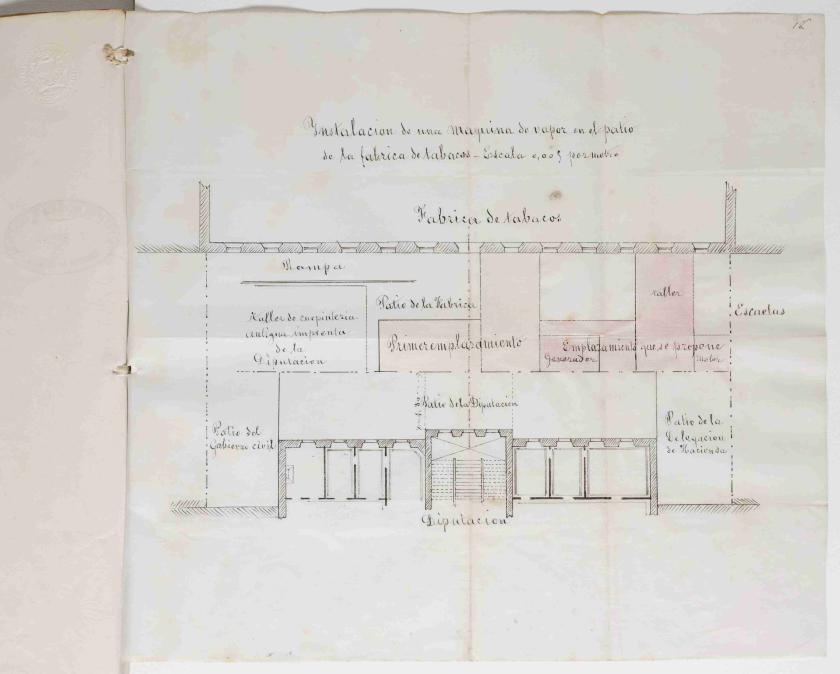 Instalacion de una maquina de vapor en el patio
de la fabrica de tabacos - Escala 0,005 por metro
Fabrica de tabacos
Rampa
Taller de carpinteria
antigua imprenta
de la
Diputacion
Patio de la Fabrica
Primer emplazamiento
taller
Escuelas
Emplazamiento que se propone
Generador
Motor
Patio de la Diputacion
Patio del
Gobierno civil
Patio de la
Delegacion
de Hacienda
Diputacion